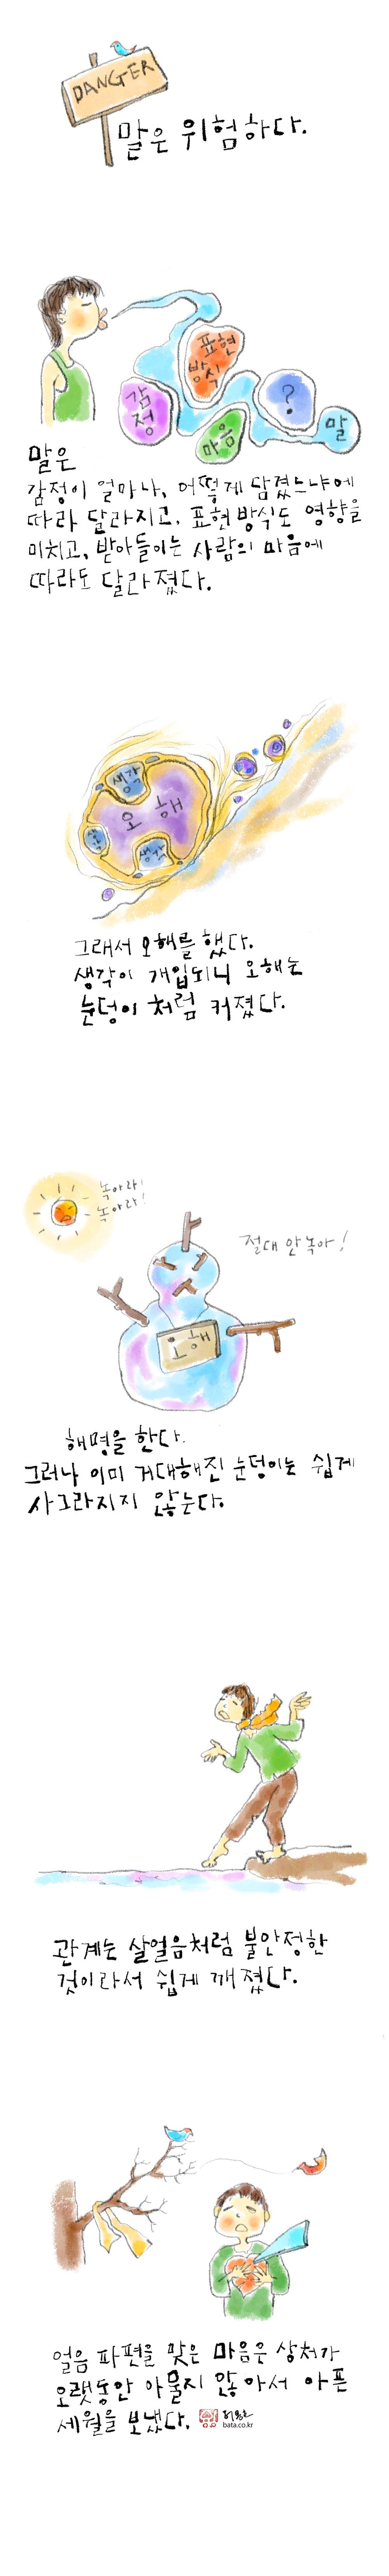 DANGER
말은 위험하다.
표현
방식
감
정
마음
?
말
말은
감정이 얼마나, 어떻게 담겼느냐에
따라 달라지고, 표현방식도 영향을
미치고, 받아들이는 사람의 마음에
따라도 달라졌다.
생각
오해
생각
생각
그래서 오해를 했다.
생각이 개입되니 오해는
눈덩이처럼 커졌다.
녹아라!
녹아라!
절대 안녹아!
오해
해명을 한다.
그러나 이미 거대해진 눈덩이는 쉽게
사그라지지 않는다.
관계는 살얼음처럼 불안정한
것이라서 쉽게 깨졌다.
얼음 파편을 맞은 마음은 상처가
오랫동안 아물지 않아서 아픈
세월을 보냈다.
bata.co.kr